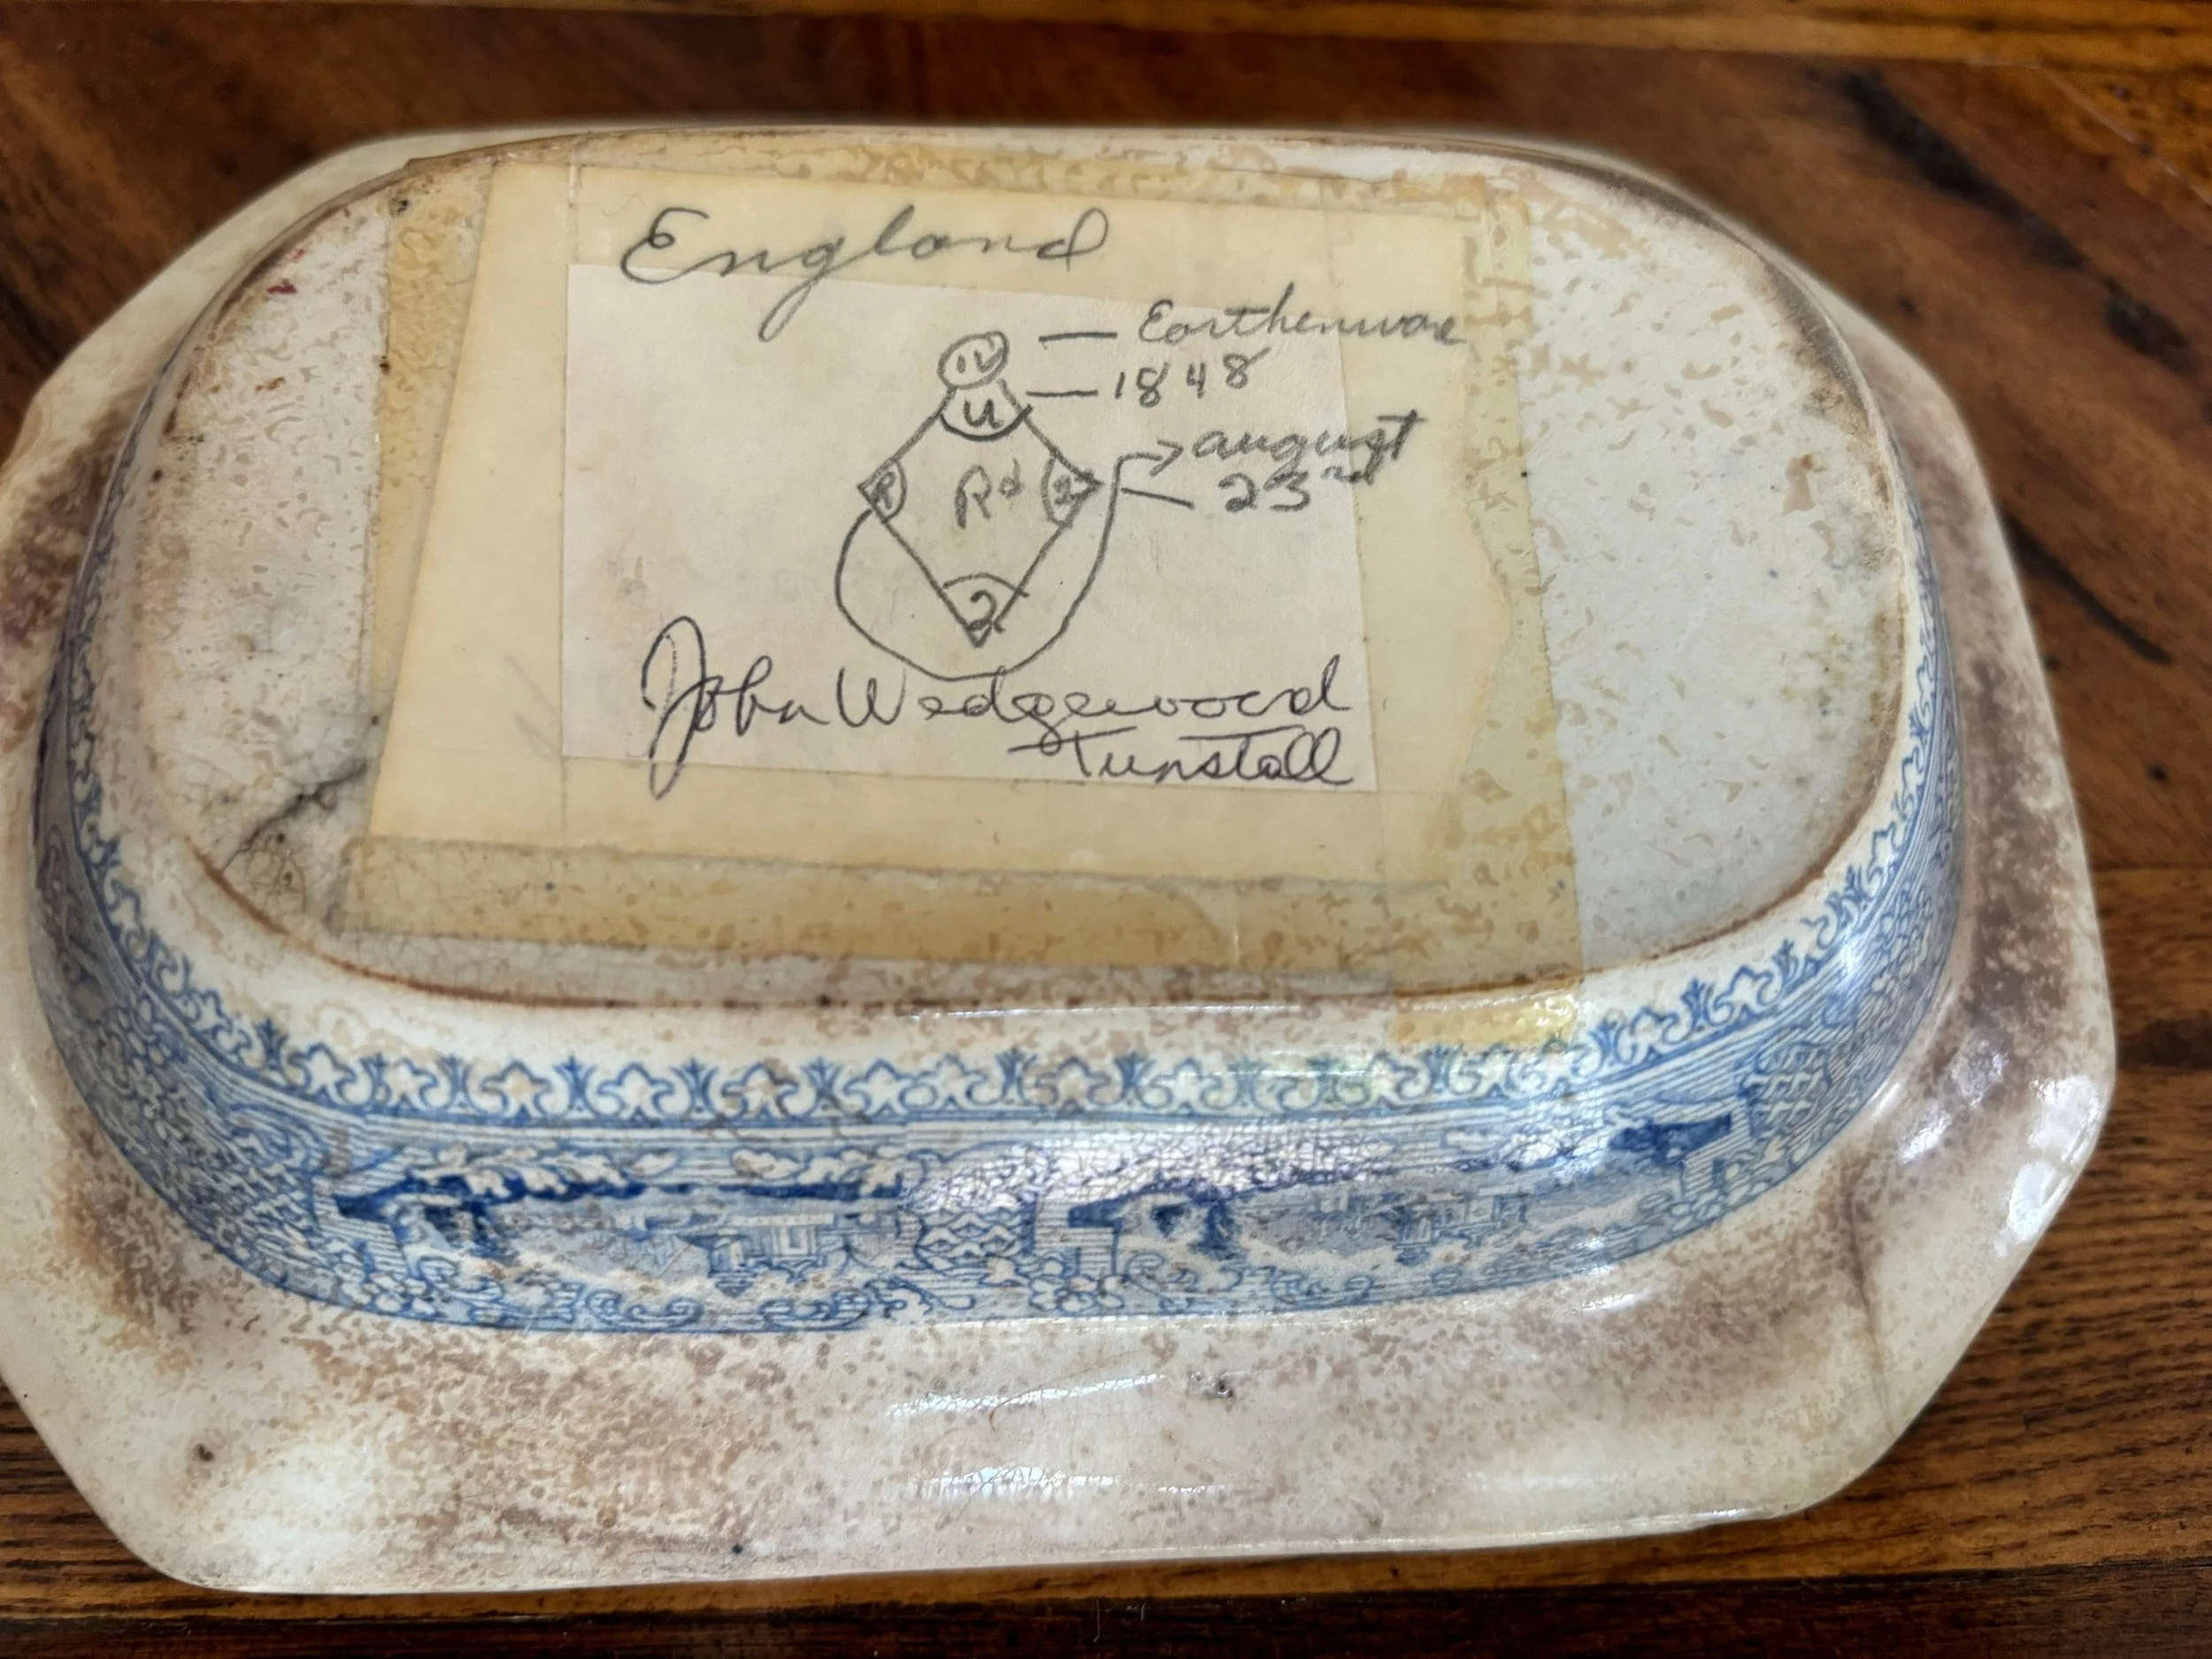 England
IV — Earthenware
U — 1848
R Rd 2 → august
— 23rd
2
John Wedgewood
Tunstall